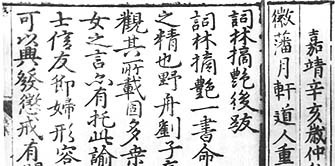 嘉靖辛亥歲仲
徽藩月軒道人重
詞林摘艷後跋
詞林摘艷一書命
之精也野舟劉子
觀其所載固多
女之言亦有托此諭
士信友 婦形容
可以興發懲戒有